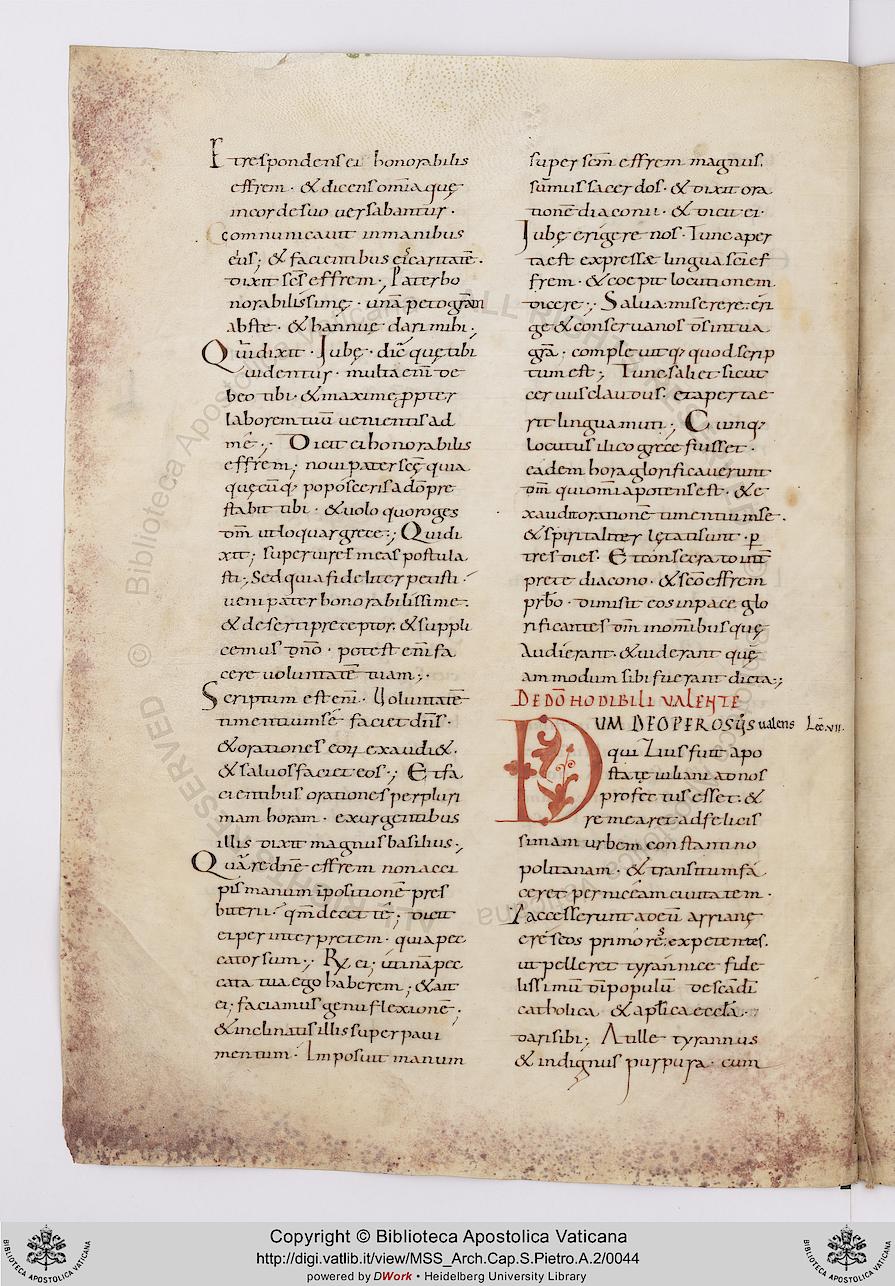 Et respondens ei honorabilis
effrem · & dicens om̄ia quę
incorde suo uersabantur ·
Communicauit inmanibus
eius ; & facientibus eis caritatē ·
dixit scs̄ effrem · Pater ho
norabilissime · unā peto gr̄am
abste · & hanniue dari mihi ·
Qui dixit · Iube · dic̄ quę tibi
uidentur · multa enī de
beo tibi · & maxime ꝓpter
laborem tuū uenientis ad
mē · Dicit ei honorabilis
effrem ; noui pater scę̄ quia
quęcūq; poposceris adō pre
stabit tibi · & uolo quoroges
dm̄ utloquar grece ; Quidi
xit ; super uires meas postula
sti ; Sed quia fideliter petisti ·
ueni pater honorabilissime ·
& deserti preceptor · & suppli
cemus dn̄o · potest enī fa
cere uoluntatē tuam ;
Scriptum est enī · Uoluntatē
timentium se faciet dn̄s ·
& orationes eoꝝ exaudi& ·
& saluos faciet eos ; Et fa
cientibus orationes per pluri
mam horam · exurgentibus
illis dixit magnus basilius ·
Quare dnē effrem non acci
pis manum īpositionē pres
biterii · qm̄ decet tē ; dicit
ei per interpretem · quia pec
cator sum ; R̄x ei ; utinā pec
cata tua ego haberem ; & ait
ei ; faciamus genu flexionē ;
& inclinatis illis super paui
mentum · Imposuit manum
super scm̄ effrem magnus
sūmus sacerdos · & dixit ora
tionē diaconii · & dicit ei ·
Iube erigere nos · Tunc aper
ta est expressę lingua scī ef
frem · & coepit locutionem
dicere ; Salua · miserere · eri
ge & conserua nos ds̄ in tua
gr̄a · completūtq; quod scrip
tum est ; Tunc saliet sicut
ceruus claudus · et aperta e
rit lingua muti ; Cumq;
locutus ilico grece fuisset ·
eadem hora glorificauerunt
dm̄ qui omīa potens est · & e
xaudit orationē timentium se ·
& spiritaliter lętati sunt · ꝑ
tres dies · Et consecrato int̄
prete diacono · & scō effrem
prb̄o · dimisit eos in pace glo
rificantes dm̄ in om̄ibus quę
Audierant · & uiderant quę
ammodum sibi fuerant dicta ;
DE DŌ HODIBILI VALENTE
DUM DEO PEROSUS ualens Lec̄ VII.
qui
state iuliani ad nos
profectus esset · &
remearet adfelicis
simam urbem constantino
politanam · & transitum fa
ceret per niceam ciuitatem ·
accesserunt ad eū arrianę
ereseos primores expetentes ·
ut pelleret tyrannice fide
lissimū dī populū de scādī
catholica & apl̄ica eccl̄a ·
dari sibi ; At ille tyrannus
& indignus purpura · cum
Copyright © Biblioteca Apostolica Vaticana
http://digi.vatlib.it/view/MSS_Arch.Cap.S.Pietro.A.2/0044
powered by DWork • Heidelberg University Library